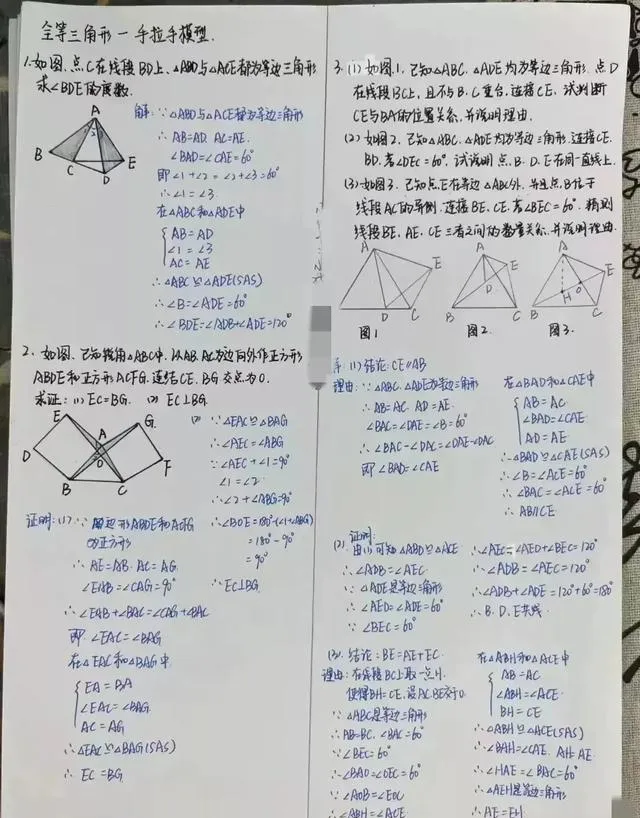 全等三角形一手拉手模型.
1.如图,点C在线段BD上,△ABD与△ACE都为等边三角形
求∠BDE的度数.
A
B
C
D
E
解:∵△ABD与△ACE都为等边三角形
∴AB=AD. AC=AE.
∠BAD=∠CAE=60°
即∠1+∠2=∠2+∠3=60°
∴∠1=∠3.
在△ABC和△ADE中
AB=AD
∠1=∠3
AC=AE
∴△ABC≌△ADE(SAS)
∴∠B=∠ADE=60°
∴∠BDE=∠ADB+∠ADE=120°
2. 如图,已知锐角△ABC中,以AB.AC为边向外作正方形
ABDE和正方形ACFG.连结CE.BG交点为O.
求证:(1) EC=BG. (2) EC⊥BG.
E
G
A
D
O
F
B
C
证明:(1)∵四边形ABDE和ACFG
为正方形
∴AE=AB.AC=AG.
∠EAB=∠CAG=90°
∴∠EAB+∠BAC=∠CAG+∠BAC
即∠EAC=∠BAG
在△EAC和△BAG中
EA=BA
∠EAC=∠BAG
AC=AG
∴△EAC≌△BAG(SAS)
∴EC=BG.
(2)∵△EAC≌△BAG
∴∠AEC=∠ABG
∵∠AEC+∠1=90°
∠1=∠2
∴∠2+∠ABG=90°
=180°-90°
=90°
∴EC⊥BG.
3.(1)如图1,已知△ABC.△ADE均为等边三角形.点D
在线段BC上,且不与B.C重合,连接CE,试判断
CE与BA的位置关系,并说明理由.
(2)如图2.已知△ABC.△ADE均为等边三角形,连接CE.
BD.若∠DEC=60°,试说明点B.D.E在同一直线上.
(3)如图3.已知点E在等边△ABC外,并且点B.E位于
线段AC的异侧,连接BE.CE.若∠BEC=60°.猜测
线段BE.AE.CE三者之间的数量关系,并说明理由.
A
E
D
C
图1
A
E
D
B
C
图2.
A
E
O
H
B
C
图3.
(1)结论:CE∥AB
理由:∵△ABC.△ADE为等边三角形
∴AB=AC. AD=AE.
∠BAC=∠DAE=∠B=60°
∴∠BAC-∠DAC=∠DAE-∠DAC
即∠BAD=∠CAE
在△BAD和△CAE中
AB=AC
∠BAD=∠CAE
AD=AE
∴△BAD≌△CAE(SAS)
∴∠B=∠ACE=60°
∴∠BAC=∠ACE=60°
∴AB∥CE
(2).证明:
由(1)可知△ABD≌△ACE
∴∠ADB=∠AEC.
∵△ADE是等边三角形
∴∠AED=∠ADE=60°
∵∠BEC=60°
∴∠AEC=∠AED+∠BEC=120°
∴∠ADB=∠AEC=120°
∴∠ADB+∠ADE=120°+60°=180°
∴B.D.E共线.
(3).结论:BE=AE+EC.
理由:在线段BE上取一点H.
使得BH=CE.设AC.BE交于O.
∵△ABC是等边三角形
∴AB=BC.∠BAC=60°
∵∠BEC=60°
∴∠BAO=∠OEC=60°
∵∠AOB=∠EOC
∴∠ABH=∠ACE
在△ABH和△ACE中
AB=AC
∠ABH=∠ACE
BH=CE
∴△ABH≌△ACE(SAS)
∴∠BAH=∠CAE. AH=AE.
∴∠HAE=∠BAC=60°
∴△AEH是等边三角形
∴AE=EH.